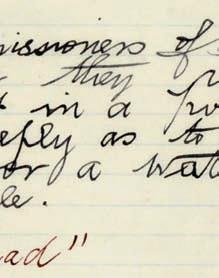 issioners of
they
in a
eply as to
or a wat
le.
ad"